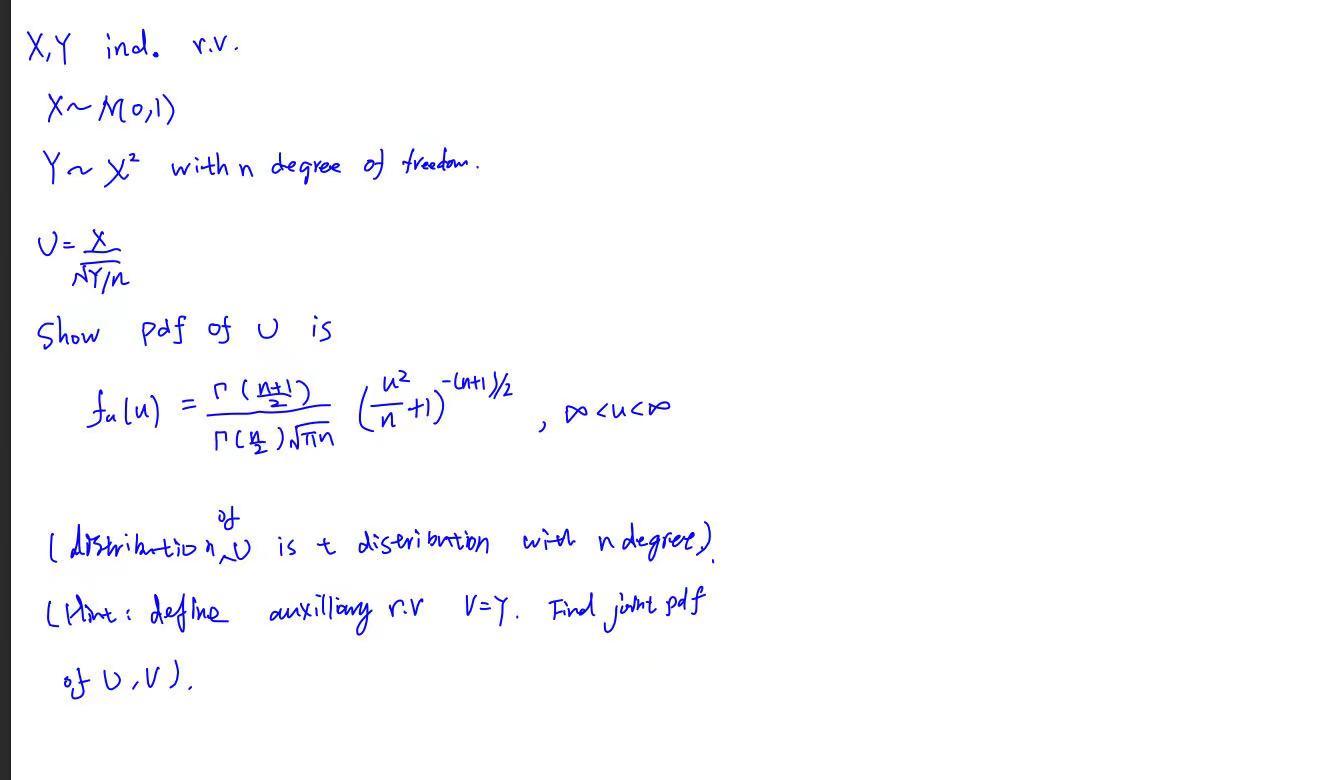 X,Y ind. r.v.
X~N(0,1)
Y~ χ² with n degree of freedom.
U = X / √(Y/n)
Show pdf of U is
fᵤ(u) = Γ((n+1)/2) / (Γ(n/2)√(πn)) (u²/n +1)^(-(n+1)/2) , ∞<u<∞
(distribution of U is t diseribution with n degree).
(Hint: define auxilliary r.v V=Y. Find joint pdf
of U,V).